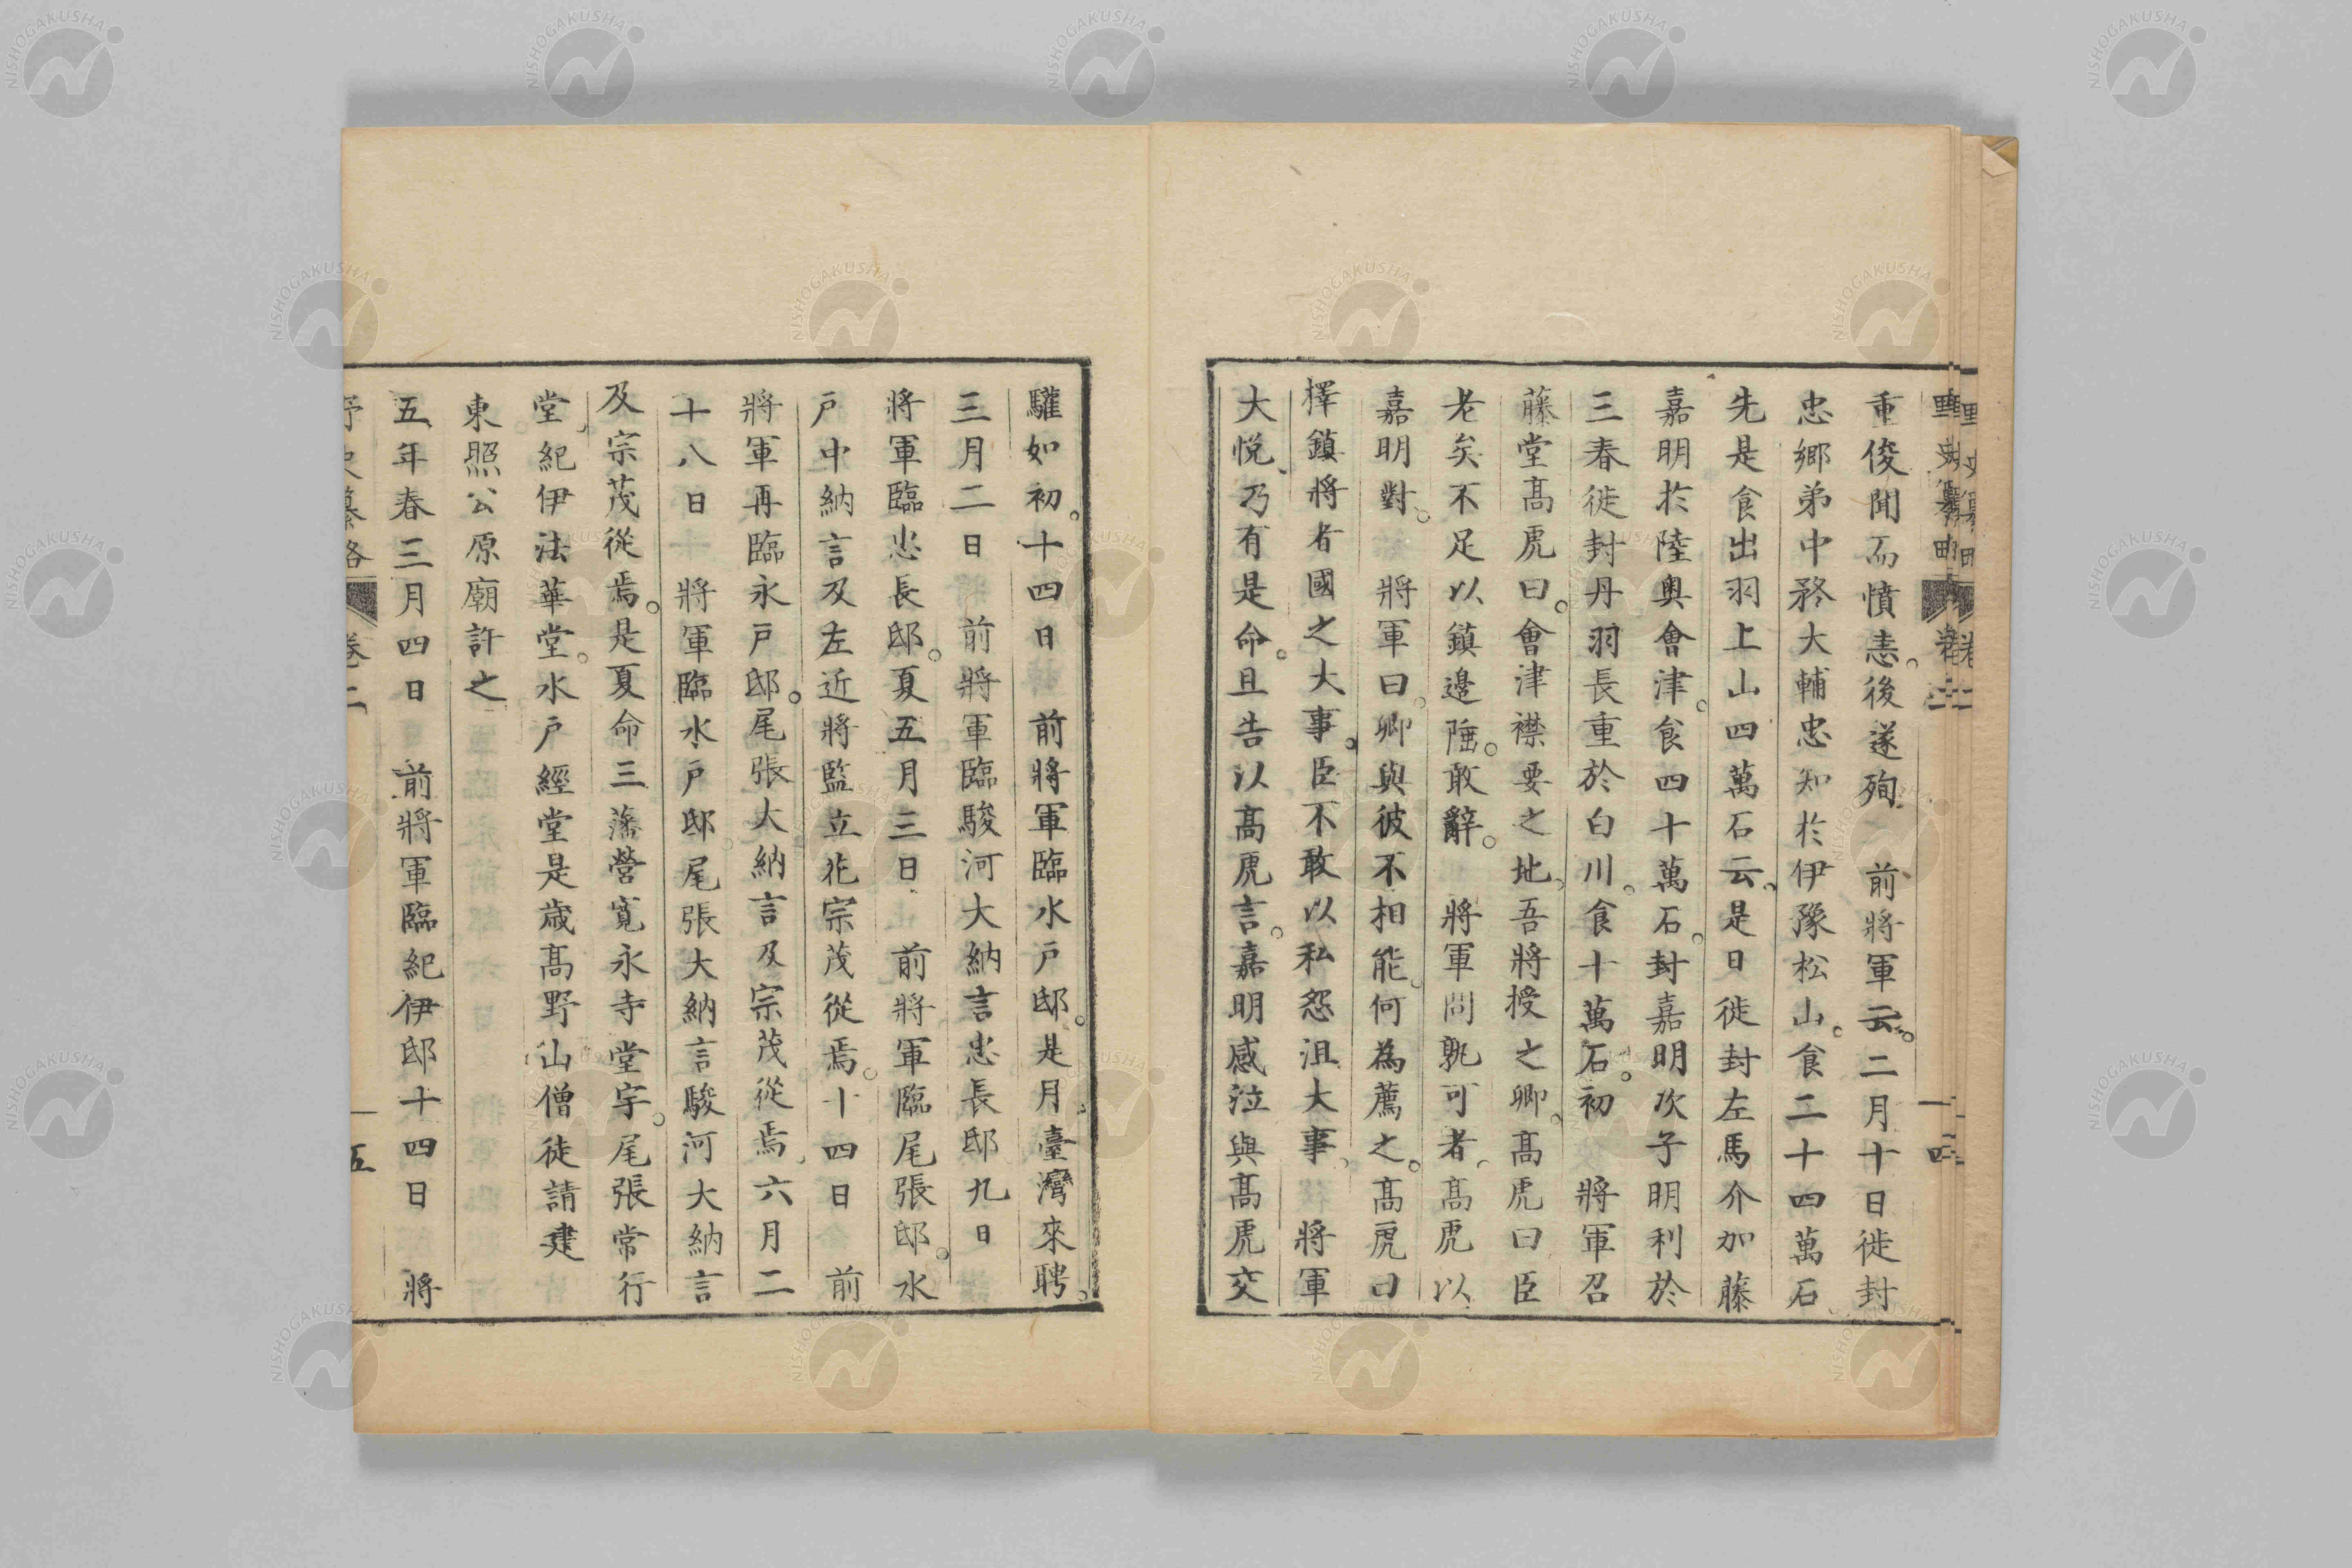 重俊聞而憤恚。後遂殉 前將軍云。二月十日徙封
忠鄉弟中務大輔忠知於伊豫松山。食二十四萬石
先是食出羽上山四萬石云。是日徙封左馬介加藤
嘉明於陸奧會津。食四十萬石。封嘉明次子明利於
三春徙封丹羽長重於白川。食十萬石。初 將軍召
藤堂高虎曰。會津襟要之地。吾將授之卿。高虎曰臣
老矣不足以鎮邊陲。敢辭。 將軍問孰可者。高虎以
嘉明對。 將軍曰。卿與彼不相能。何為薦之。高虎曰
擇鎮將者國之大事。臣不敢以私怨沮大事。 將軍
大悅。乃有是命。且告以高虎言。嘉明感泣與高虎交
驩如初。十四日 前將軍臨水戶邸。是月臺灣來聘。
三月二日 前將軍臨駿河大納言忠長邸九日
將軍臨忠長邸。夏五月三日 前將軍臨尾張邸。水
戶中納言及左近將監立花宗茂從焉。十四日 前
將軍再臨水戶邸。尾張大納言及宗茂從焉。六月二
十八日 將軍臨水戶邸。尾張大納言駿河大納言
及宗茂從焉。是夏命三藩營寬永寺堂宇。尾張常行
堂紀伊法華堂。水戶經堂是歲高野山僧徒請建
東照公原廟許之
五年春三月四日 前將軍臨紀伊邸十四日 將
卷二
五
NISHOGAKUSHA